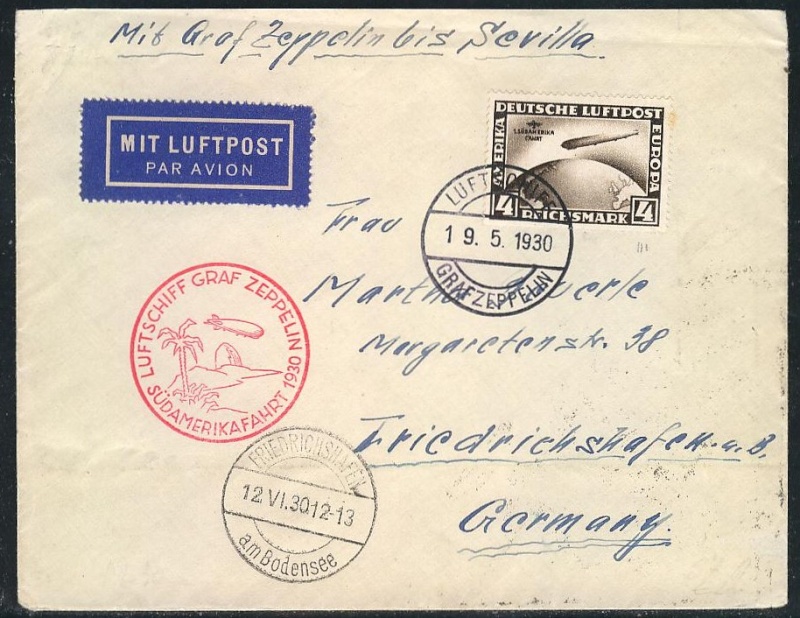 Mit Graf Zeppelin bis Sevilla.
MIT LUFTPOST
PAR AVION
DEUTSCHE LUFTPOST
AMERIKA
EUROPA
1. SÜDAMERIKA
FAHRT
4
REICHSMARK
4
LUFTSCHIFF
19.5.1930
GRAF ZEPPELIN
Frau
Martha
Margaretenstr. 38
Friedrichshafen a. B.
Germany.
LUFTSCHIFF GRAF ZEPPELIN
SÜDAMERIKAFAHRT 1930
FRIEDRICHSHAFEN
12.VI.30 12-13
am Bodensee